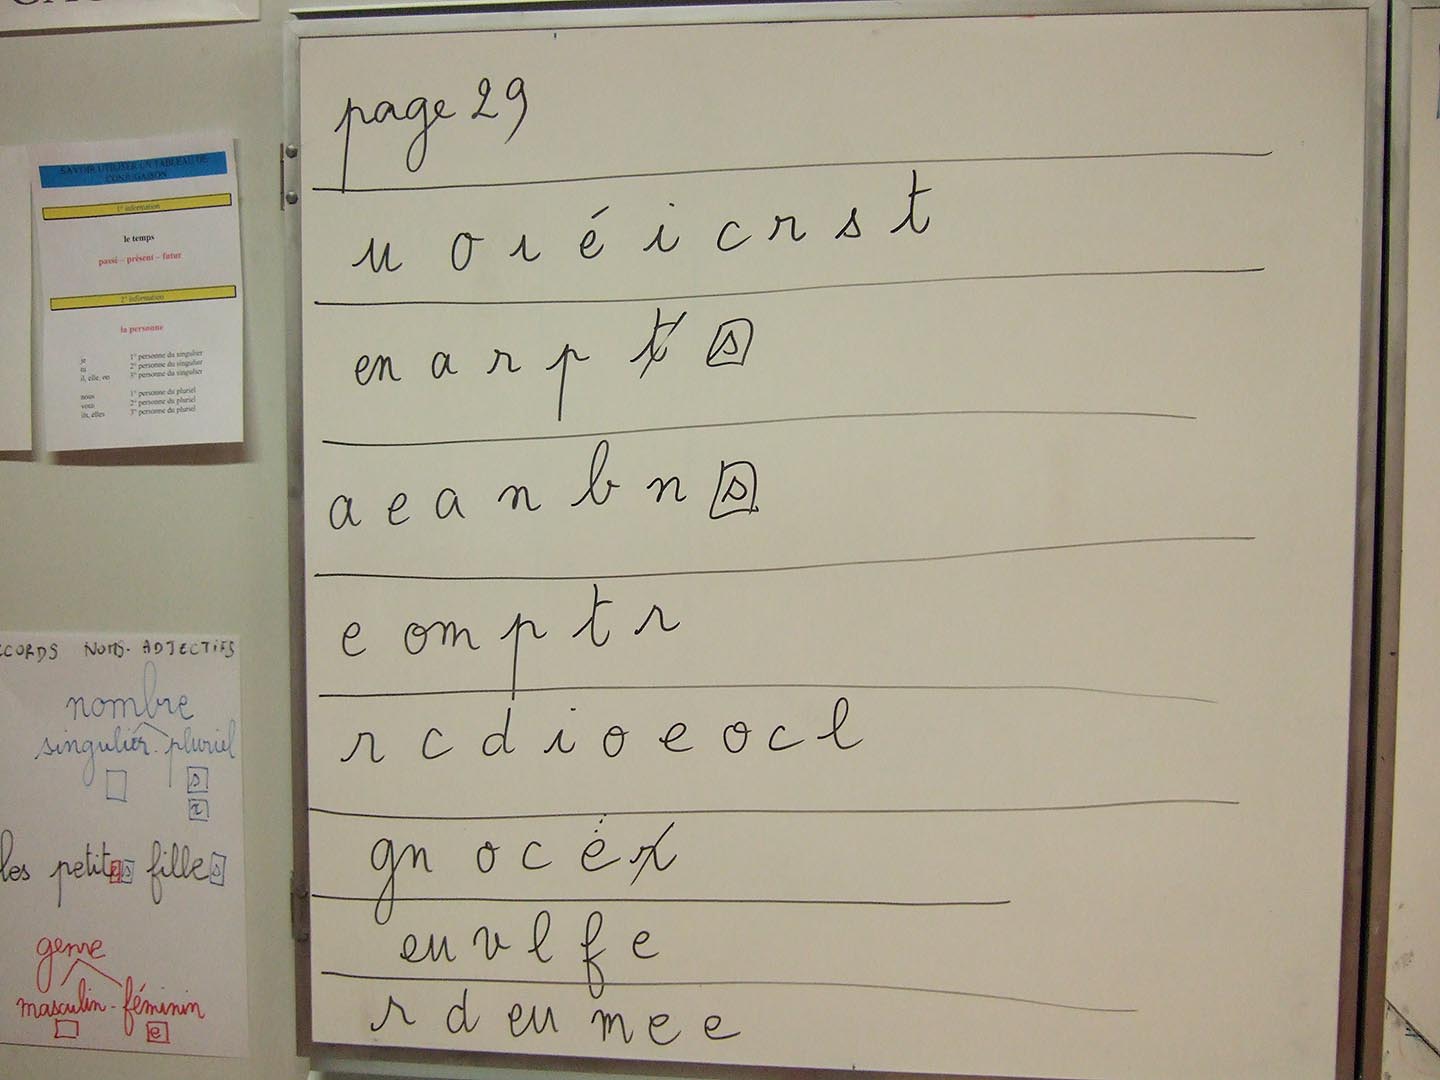 page 29
u o i é i c r s t
en a r p t s
a e a n b n s
e om p t r
r c d i o e o c l
gn o c e r
eu v l f e
r d eu m e e
SAVOIR UTILISER UN TABLEAU DE
CONJUGAISON
1° information
le temps
passé – présent – futur
2° information
la personne
je 1° personne du singulier
tu 2° personne du singulier
il, elle, on 3° personne du singulier
nous 1° personne du pluriel
vous 2° personne du pluriel
ils, elles 3° personne du pluriel
CCORDS NOMS- ADJECTIFS
nombre
singulier - pluriel
s
x
les petites filles
genre
masculin - féminin
e